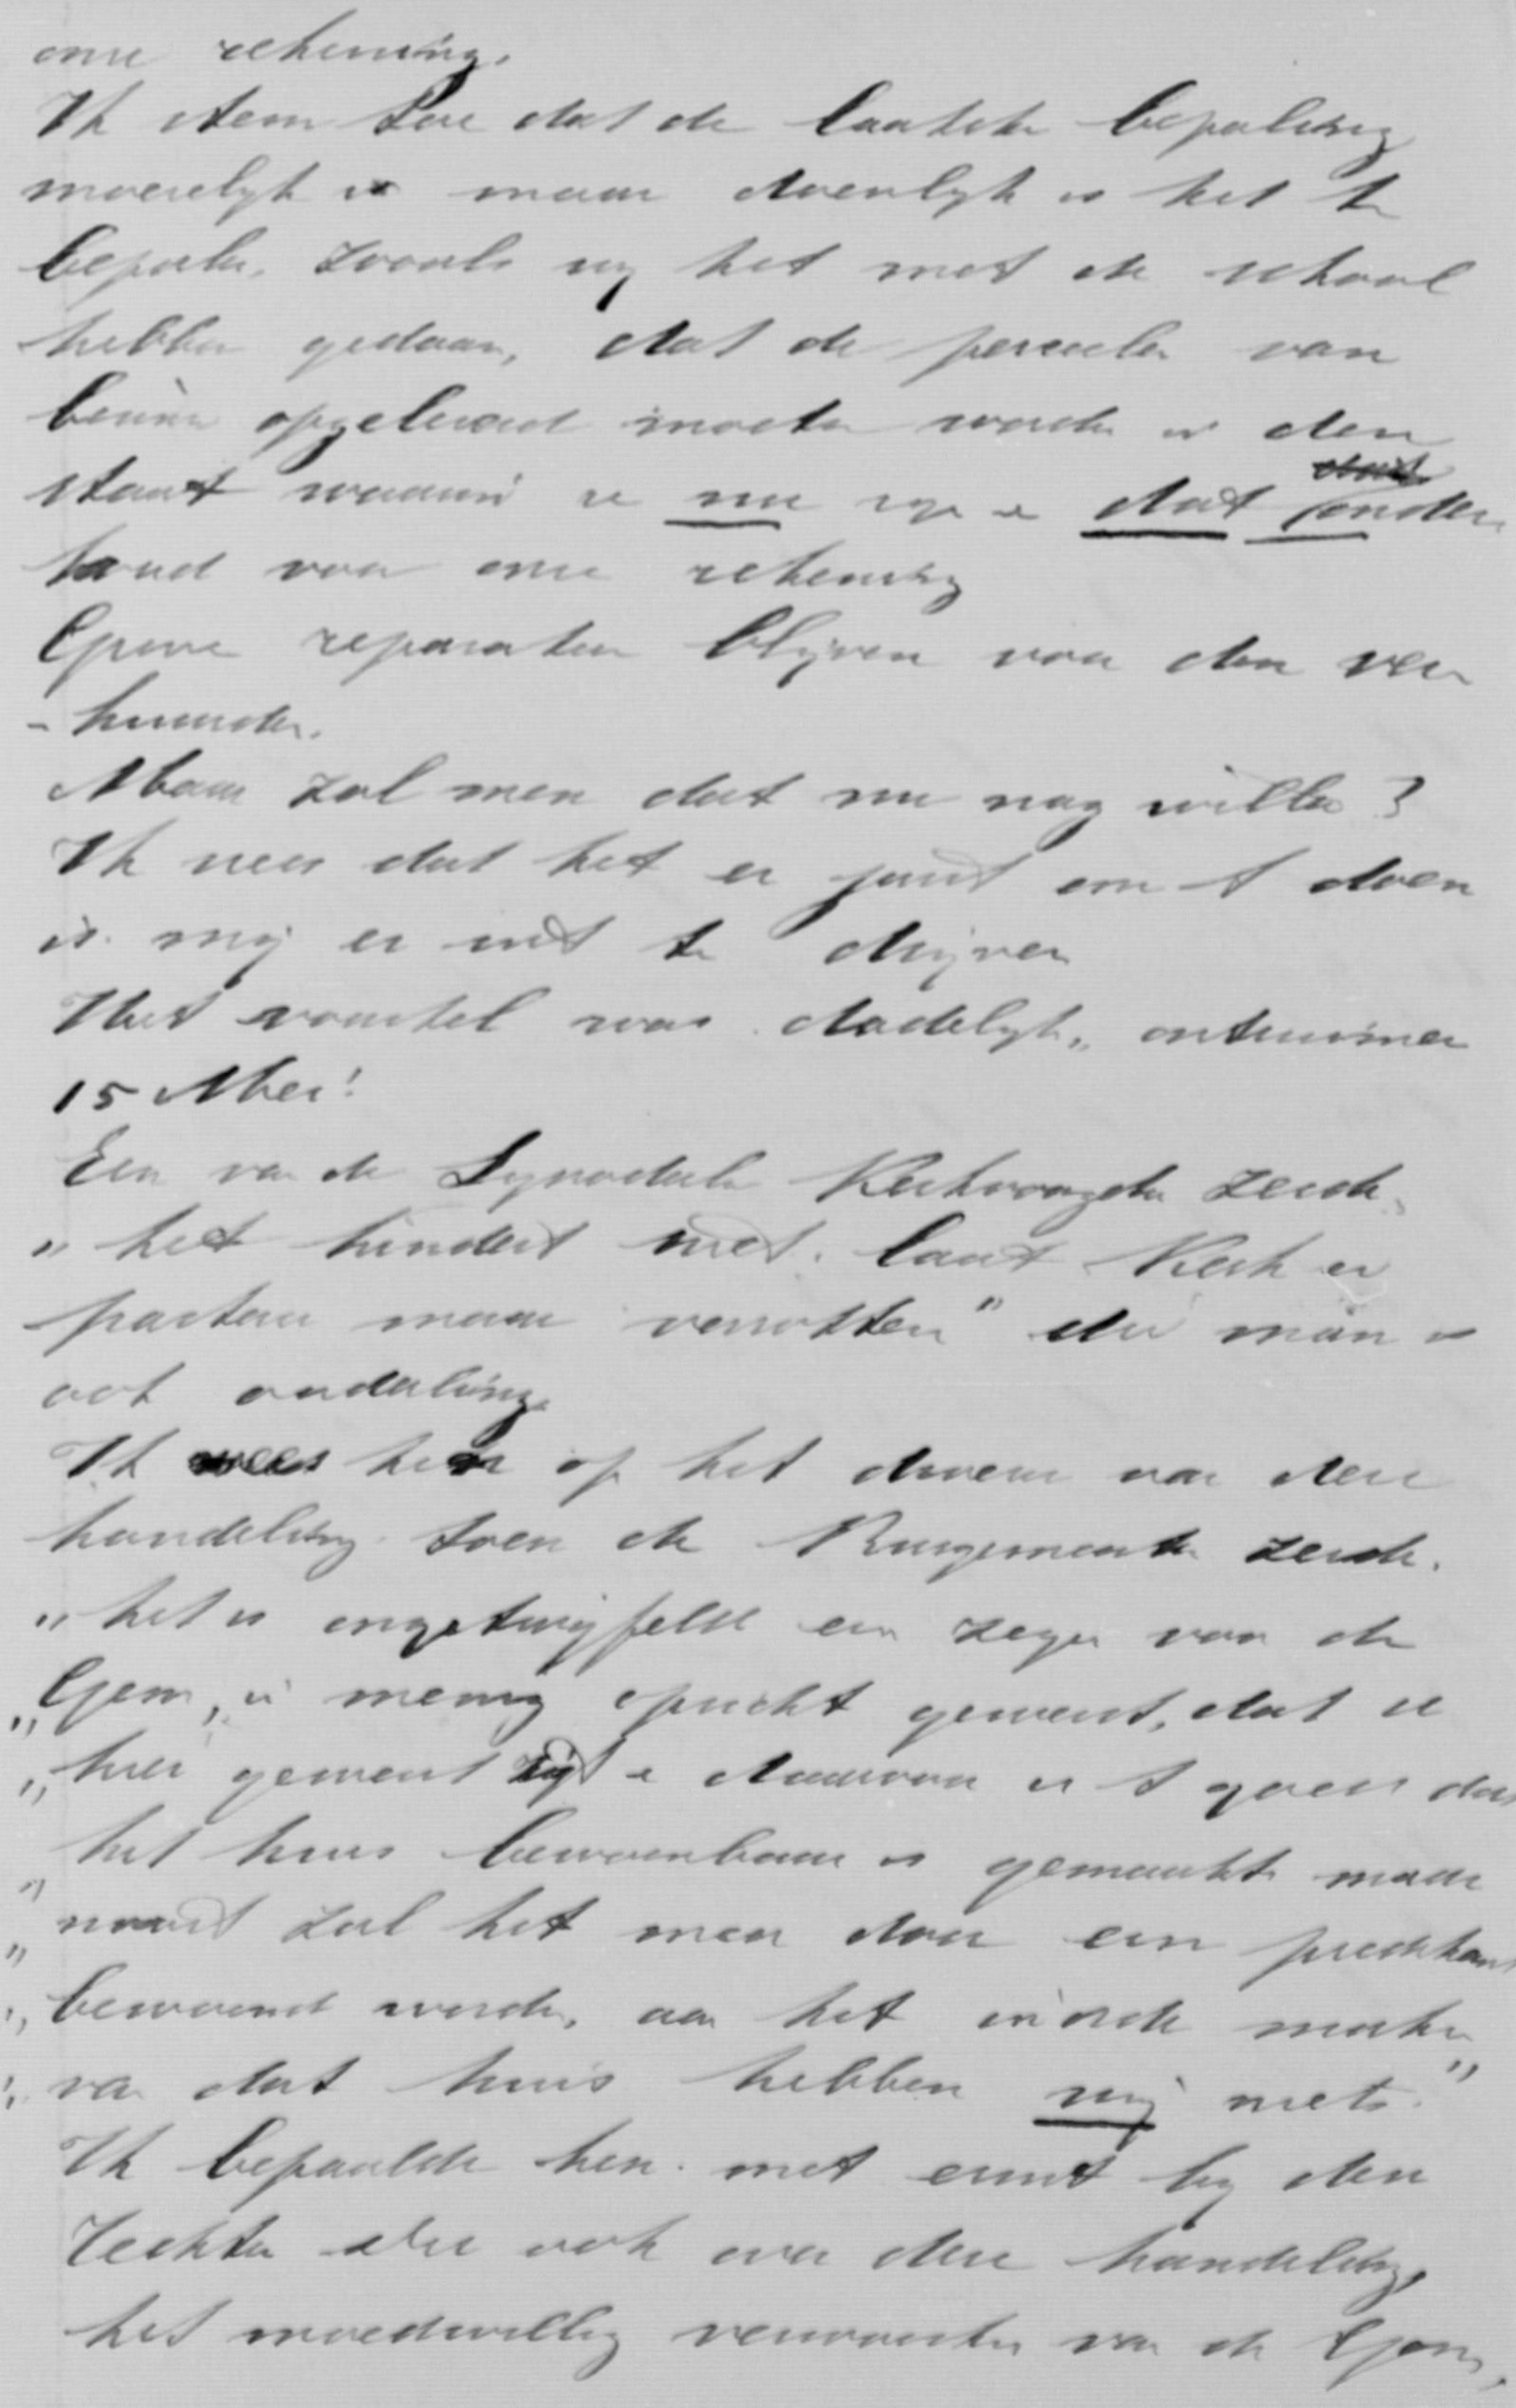 onze rekening.
Ik stem toe dat de laatste bepaling
moeielyk is maar doenlyk is het te
bepalen, zooals wy het met de school
hebben gedaan, dat de perceelen van
binnen opgeleverd moeten worden in den
staat waarin ze nu zyn en dat onder
houd voor onze rekening
Groove reparatien blijven voor den ver
-huurder.
Maar zal men dat nu nog willen?
Ik vrees dat het er juist om te doen
is mij er uit te drijven
Het voorstel was dadelyk, ontruimen
15 Mei!
Een van de Synodale Kerkvoogden zeide,
"het hindert niet, laat Kerk en
pastorie maar verrotten" die man is
ook ouderling.
Ik wees hen op het droeve van deze
handeling toen de Burgemeester zeide.
"het is ongetwijfeld een zegen voor de
"Gem, in menig opzicht geweest, dat U
"hier geweest zijt en daarvoor is 't goed dat
"het huis bewoonbaar is gemaakt maar
"nooit zal het meer door een predikant
"bewoond worden, aan het in orde maken
"van dat huis hebben wij niets."
Ik bepaalde hen met ernst by den
Rechter die ook over deze handeling,
het moedwillig verwoesten van de Gem,